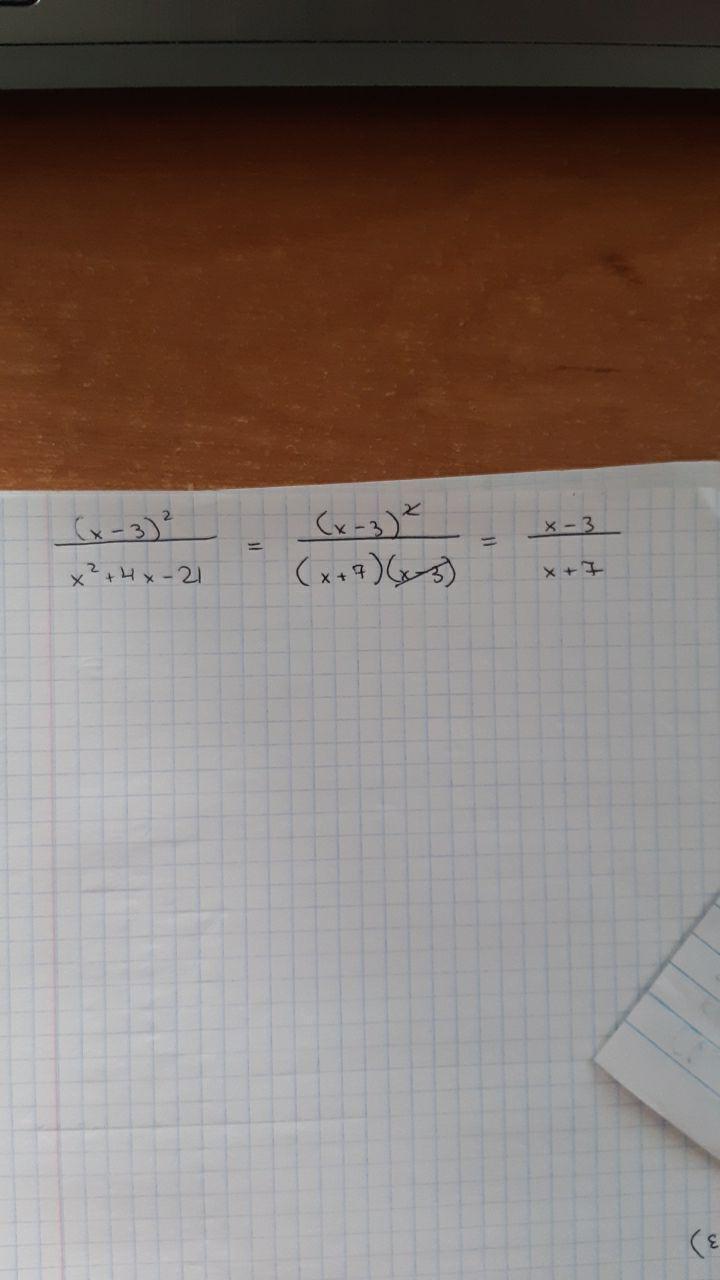 (x-3)² / x²+4x-21 = (x-3)² / (x+7)(x-3) = x-3 / x+7
3)